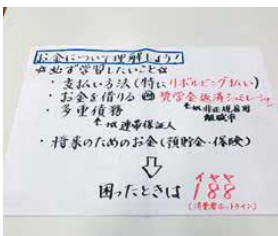 お金について理解しよう!
☆必ず学習したいこと☆
・支払い方法(特にリボルビング払い)
・お金を借りる 奨学金返済シミュレーション
・多重債務 非正規雇用
連帯保証人
・将来のためのお金(預貯金・保険)
⇩
困ったときは 188
(消費者ホットライン)